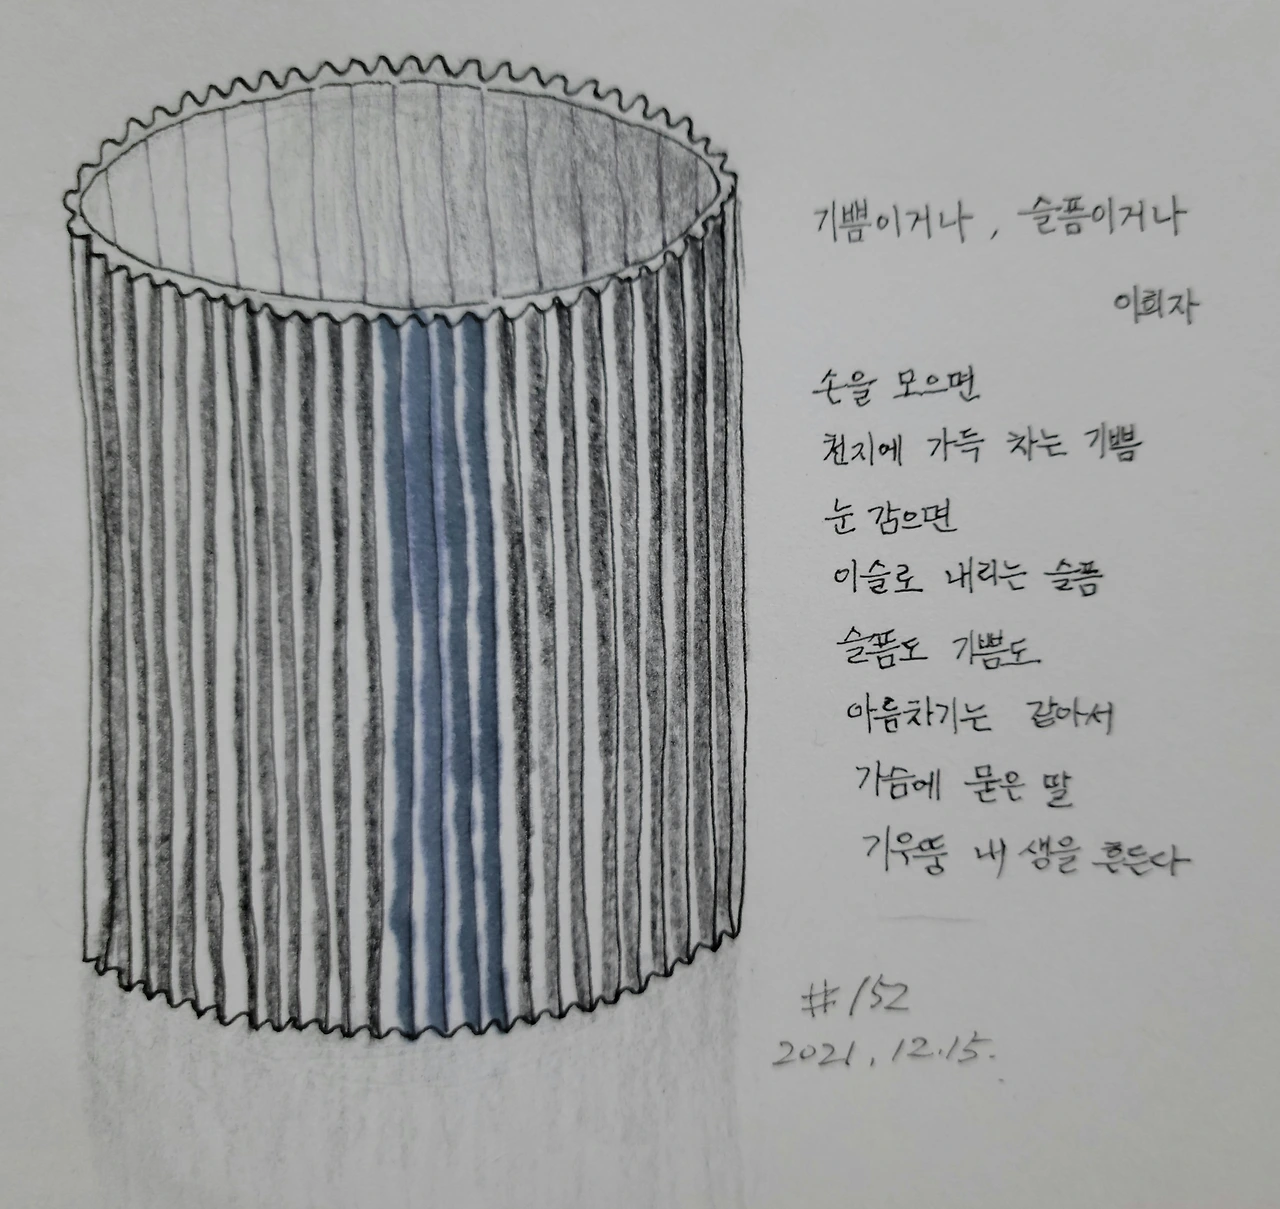 기쁨이거나, 슬픔이거나
이희자
손을 모으면
천지에 가득 차는 기쁨
눈 감으면
이슬로 내리는 슬픔
슬픔도 기쁨도
아름차기는 같아서
가슴에 묻은 딸
기우뚱 내 생을 흔든다
#152
2021.12.15.